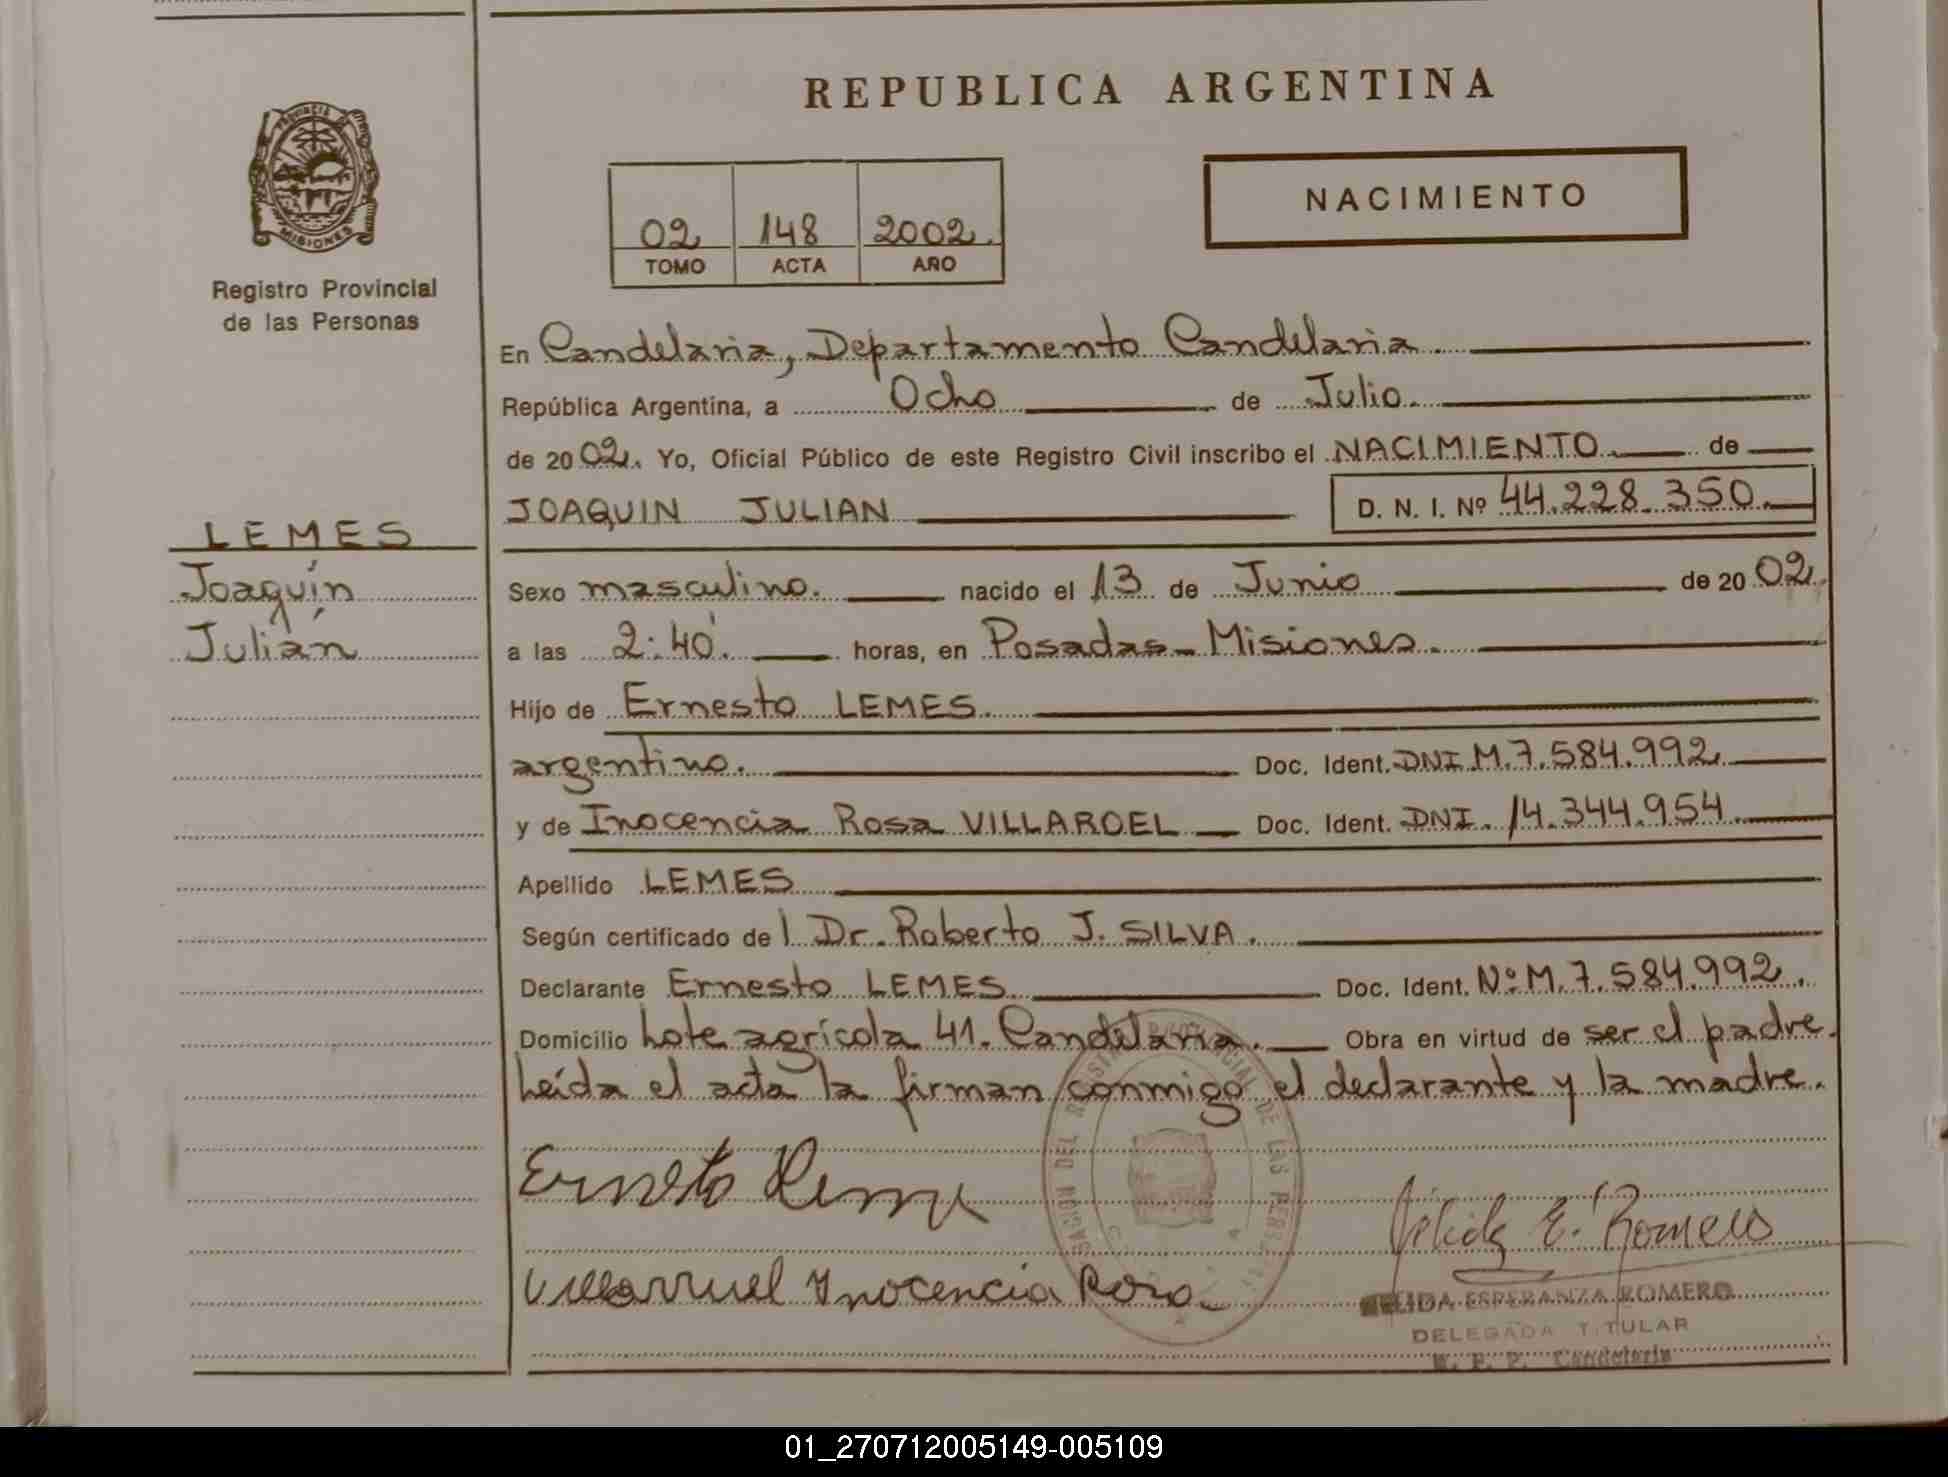 REPUBLICA ARGENTINA
PROVINCIA DE
MISIONES
Registro Provincial
de las Personas
02 148 2002.
TOMO ACTA AÑO
NACIMIENTO
En Candelaria, Departamento Candelaria.
República Argentina, a Ocho de Julio.
de 2002. Yo, Oficial Público de este Registro Civil inscribo el NACIMIENTO de
JOAQUIN JULIAN D. N. I. Nº 44.228.350.
LEMES
Joaquín
Julián
Sexo masculino. nacido el 13 de Junio de 2002.
a las 2:40'. horas, en Posadas-Misiones.
Hijo de Ernesto LEMES.
argentino. Doc. Ident. DNI.M.7.584.992
y de Inocencia Rosa VILLAROEL Doc. Ident. DNI. 14.344.954
Apellido LEMES
Según certificado de l Dr. Roberto J. SILVA.
Declarante Ernesto LEMES Doc. Ident. Nº M.7.584.992.
Domicilio Lote agrícola 41. Candelaria. Obra en virtud de ser el padre.
Leída el acta la firman conmigo el declarante y la madre.
Ernesto Leme
Villarruel Inocencia Rosa
E. Romero
ESPERANZA ROMERO
DELEGADA TITULAR
R. P. P. Candelaria
01_270712005149-005109